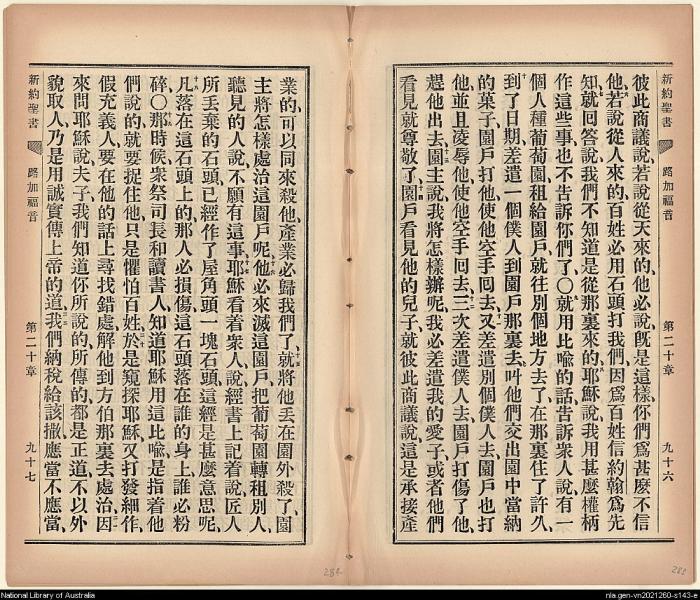 新約聖書 路加福音 第二十章 九十六
彼此商議說、若說從天來的、他必說、旣是這樣、你們爲甚麽不信
他、若說從人來的、百姓必用石頭打我們、因爲百姓信約翰爲先
知、就回答說、我們不知道是從那裏來的、耶穌說、我用甚麽權柄
作這些事、也不告訴你們了、〇就用比喩的話、告訴衆人說、有一
個人種葡萄園、租給園戶、就往別個地方去了、在那裏住了許久、
到了日期、差遣一個僕人、到園戶那裏去、叫他們交出園中當納
的菓子、園戶打他、使他空手回去、又差遣別個僕人去、園戶也打
他、並且凌辱他、使他空手回去、三次差遣僕人去、園戶打傷了他、
趕他出去、園主說、我將怎樣辦呢、我必差遣我的愛子、或者他們
看見就尊敬了、園戶看見他的兒子、就彼此商議說、這是承接產
業的、可以同來殺他、產業必歸我們了、就將他丟在園外殺了、園
主將怎樣處治這園戶呢、他必來滅這園戶、把葡萄園轉租別人、
聽見的人說、不願有這事、耶穌看着衆人說、經書上記着說、匠人
所丟棄的石頭、已經作了屋角頭一塊石頭、這經是甚麽意思呢、
凡落在這石頭上的、那人必損傷、這石頭落在誰的身上、誰必粉
碎、〇那時候衆祭司長和讀書人、知道耶穌用這比喩、是指着他
們說的、就要捉住他、只是懼怕百姓、於是窺探耶穌、又打發細作、
假充義人、要在他的話上尋找錯處、解他到方伯那裏去處治、因
來問耶穌說、夫子、我們知道你所說的、所傳的、都是正道、不以外
貌取人、乃是用誠實傳上帝的道、我們納稅給該撒、應當不應當、
新約聖書 路加福音 第二十章 九十七
National Library of Australia
nla.gen-vn2021260-s143-e